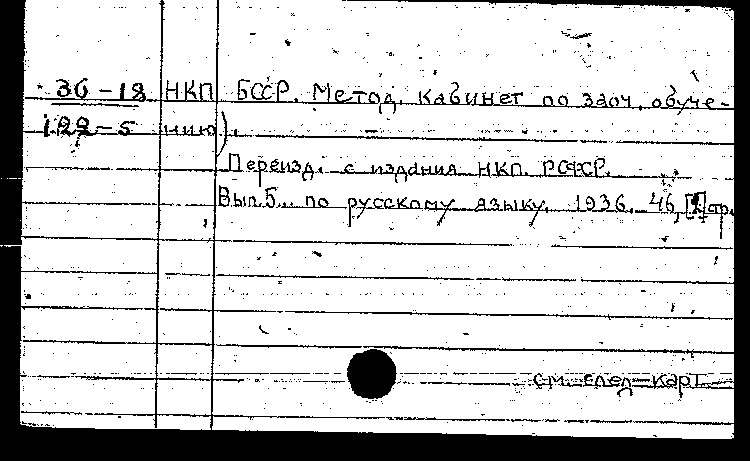 36-18 НКП БССР. Метод. кабинет по заоч. обуче-
122-5 нию).
Переизд. с издания НКП. РСФСР.
Вып.5... по русскому языку. 1936. 46, стр.
см. след. карт.